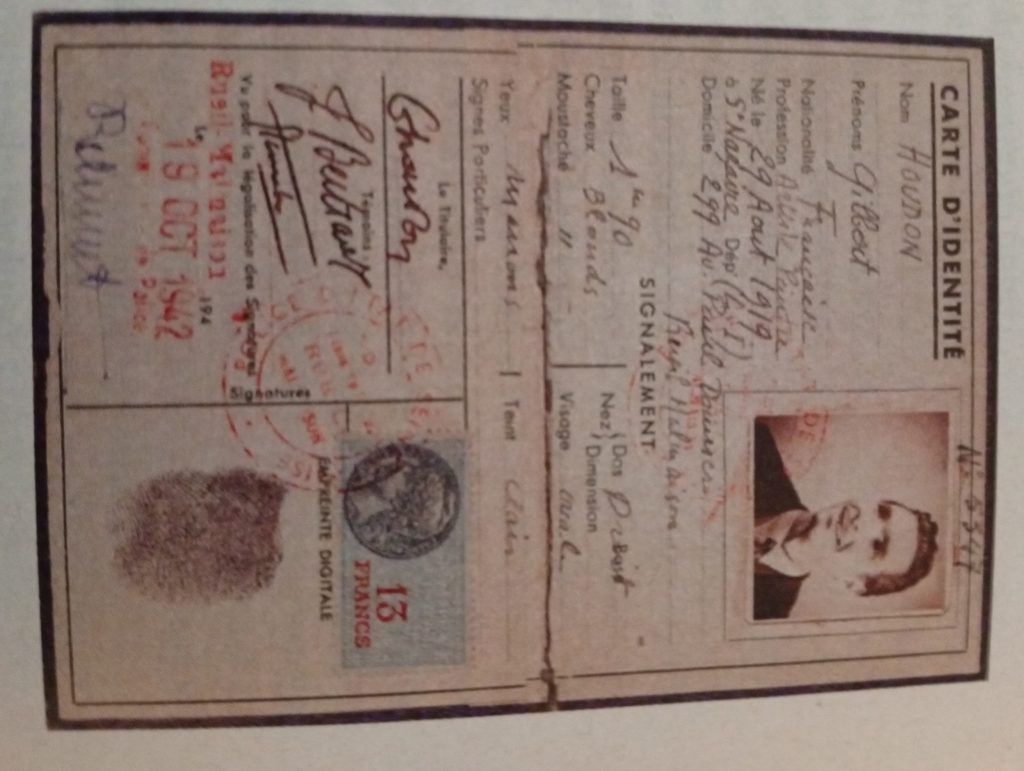 CARTE D'IDENTITÉ
Nom HOUDON
Prénoms Gilbert
Nationalité Française
Profession Artiste Peintre
Né le 29 Aout 1919
à St Nazaire Dép (B. I)
Domicile 299 Av. Paul Doumer
Rueil Malmaison
SIGNALEMENT
Taille 1m 90
Cheveux Blonds
Moustache "
Nez Dos
Dimension
Visage ovale
Yeux marrons
Teint clair
Signes Particuliers
Le Titulaire,
Témoins
Vu pour la légalisation des Signatures
Rueil-Malmaison
Le, 194
19 OCT 1942
Signatures
13
FRANCS
EMPREINTE DIGITALE